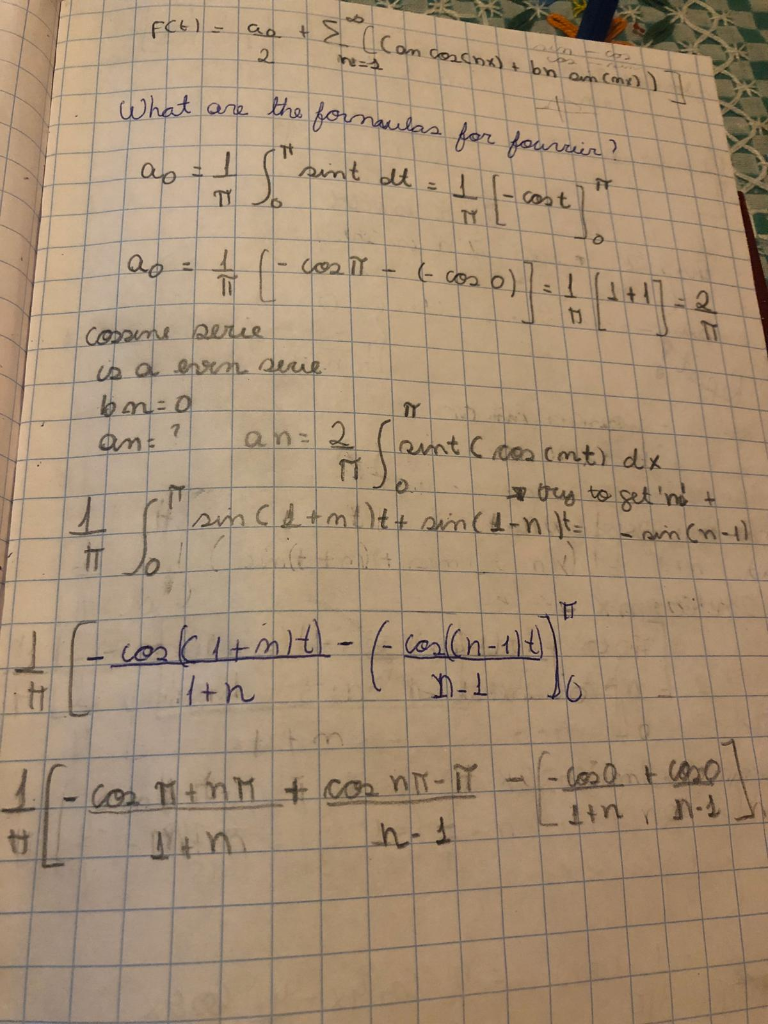 F(t) = a0/2 + Σ_{n=1}^{∞} [(an cos(nx) + bn sin(nx))]
What are the formulas for fourrier?
a0 = 1/π ∫_0^π sint dt = 1/π [-cost]_0^π
a0 = 1/π [-cosπ - (-cos0)] = 1/π [1+1] = 2/π
cosine serie
is a even serie
bn=0
an=? an= 2/π ∫_0^π sint (cos(nt) dx
try to get 'n' +
1/π ∫_0^π sin(1+n)t + sin(1-n)t= -sin(n-1)
1/π [-cos((1+n)t)/1+n - (-cos((n-1)t)/n-1]_0^π
1/π [-cos π+nπ/1+n + cos nπ-π/n-1 - [-cos0/1+n + cos0/n-1]